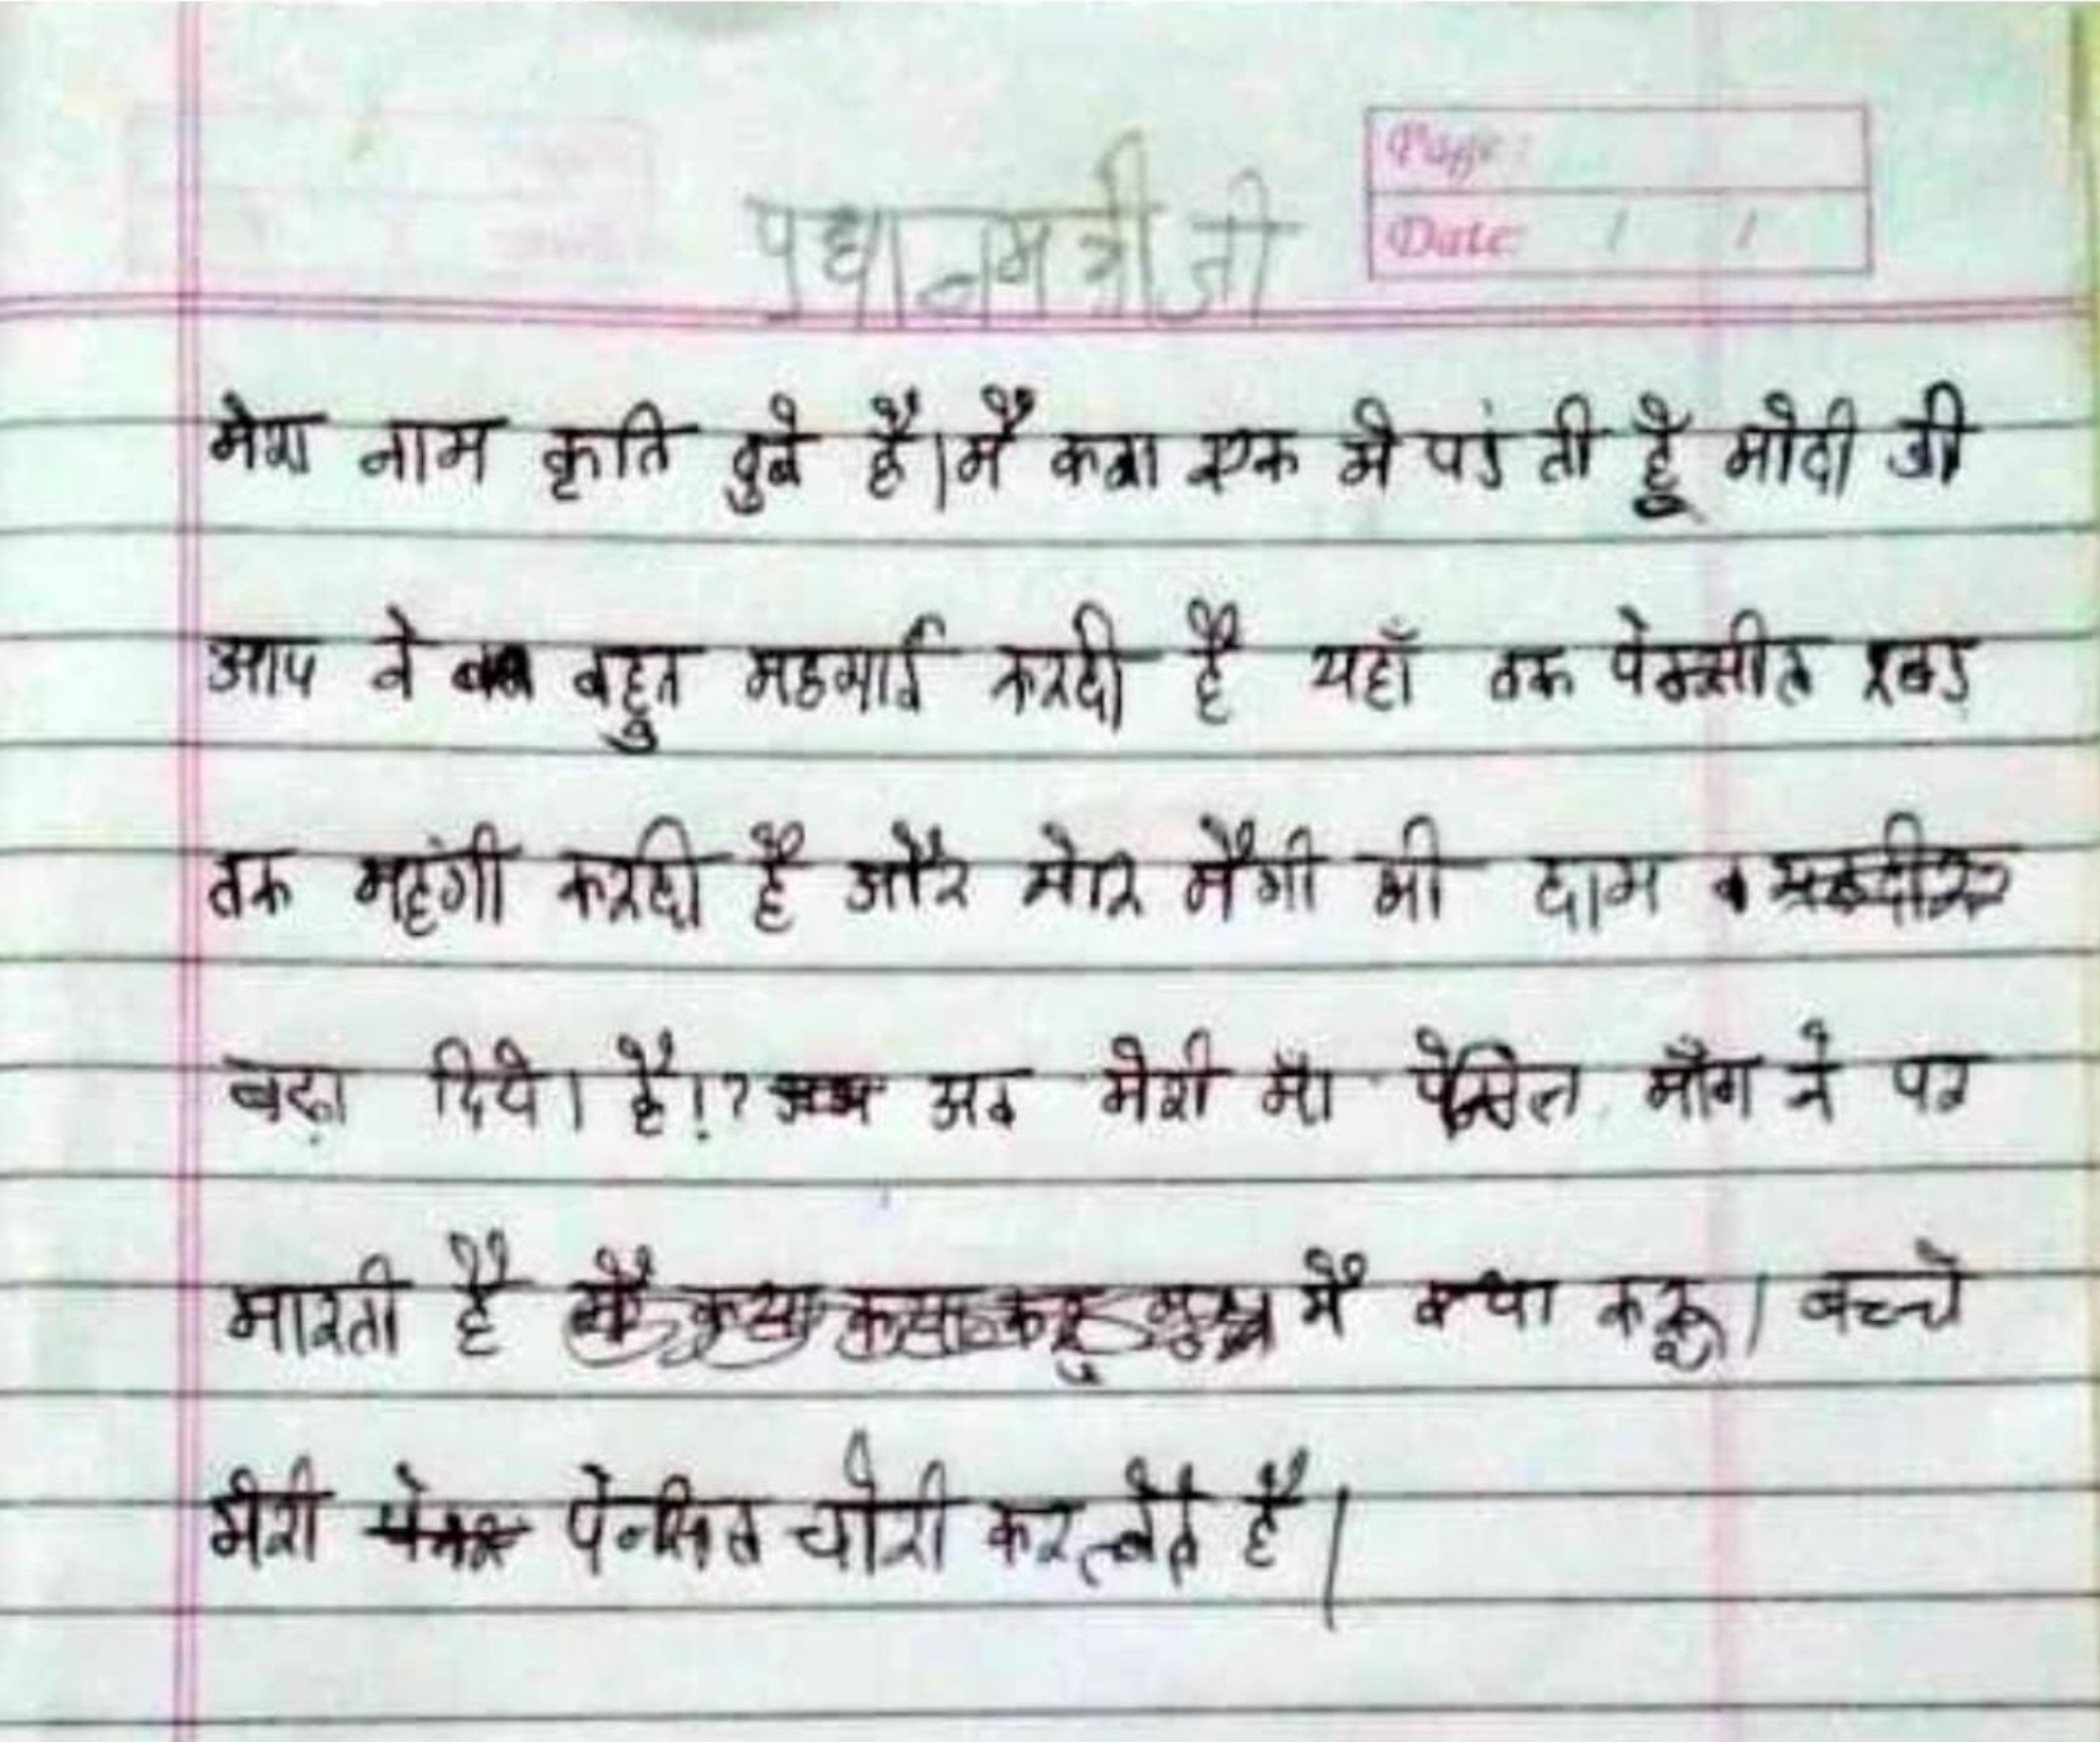 Page:
Date: / /
प्रधानमंत्री जी
मेरा नाम कृति दुबे है। मैं कक्षा एक मे पडंती हूँ मोदी जी
आप ने बहुत महगाई करदी है यहाँ तक पेन्सील रबड़
तक महंगी करदी है और मेरि मैगी भी दाम
बढ़ा दिये। है!? अब मेरी माँ पेन्सिल माँग ने पर
मारती है मैं क्या करू। बच्चे
मेरी पेन्सिल चोरी कर लेते है।